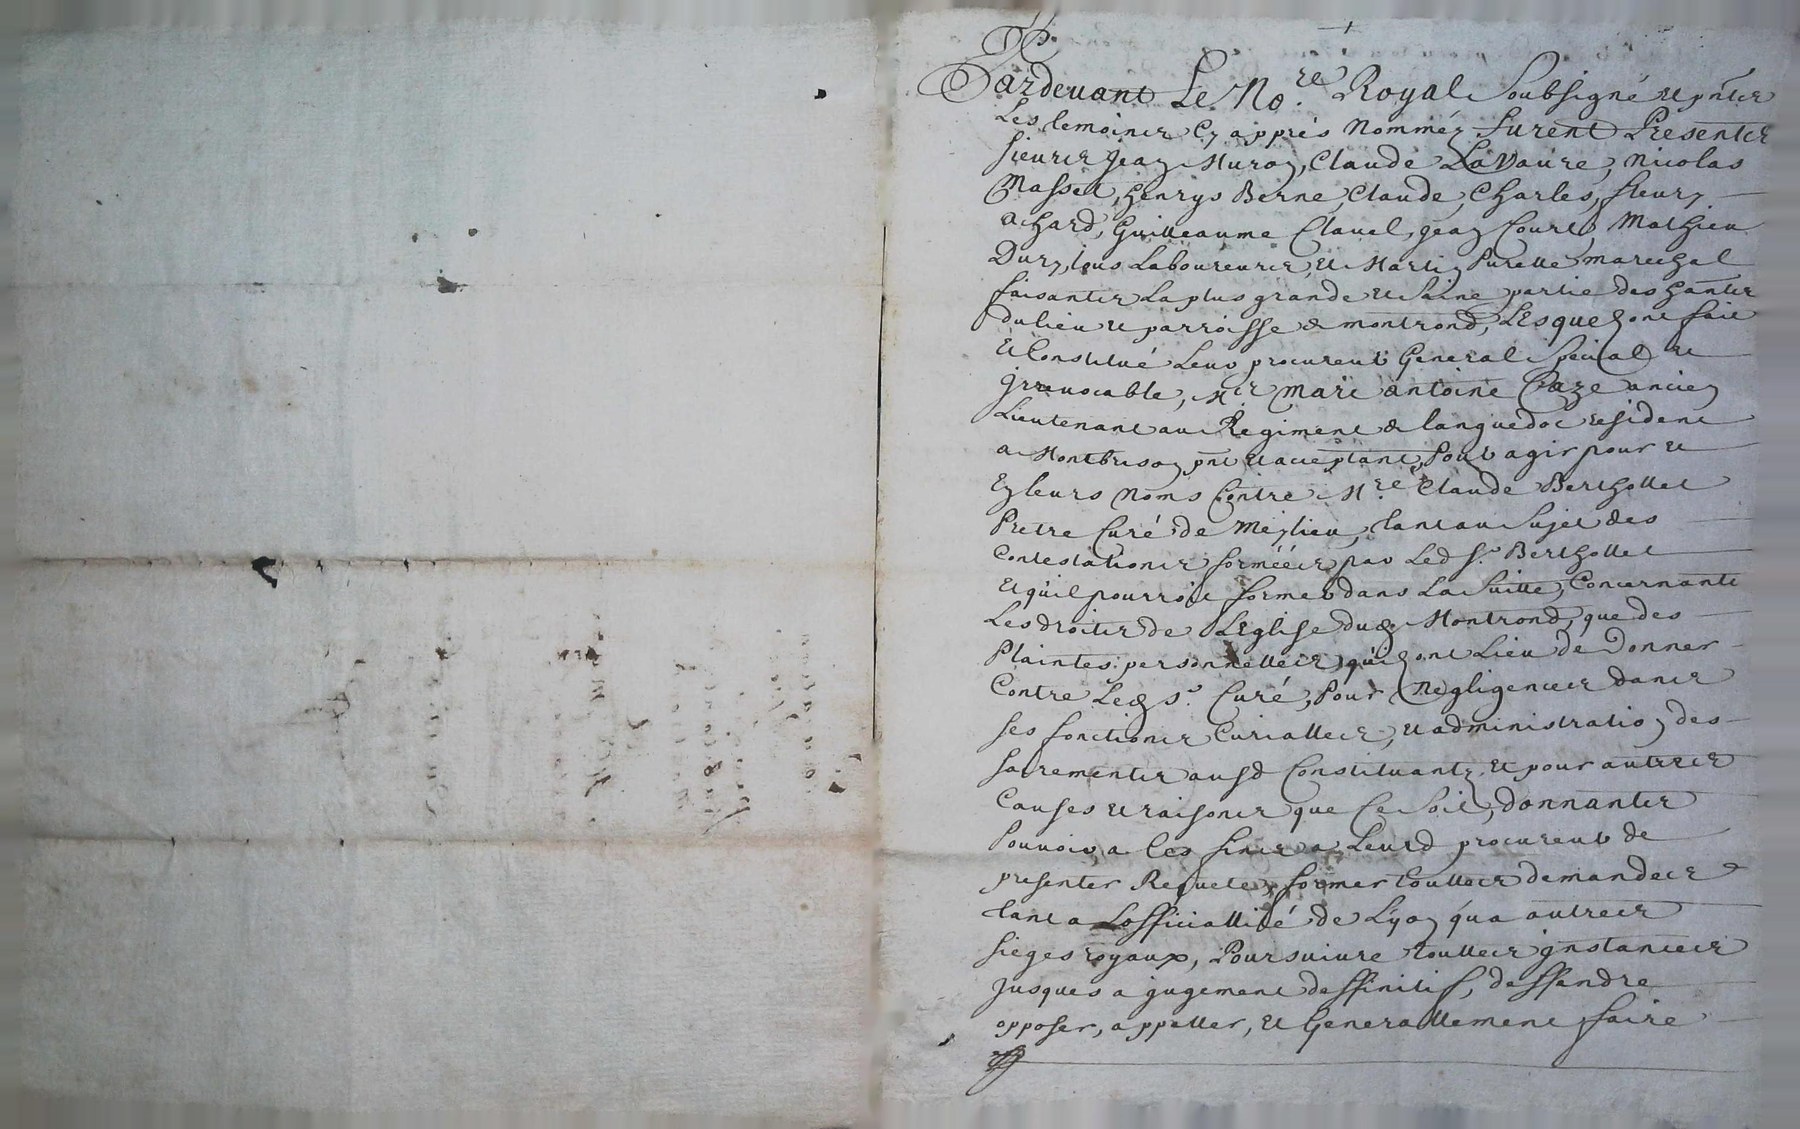 Pardevant Le No.re Royal Soubsigné et pntes
Les temoins Cy apprés Nommés furent Presentes
sieurs Jean Muron, Claude LaVaure, Nicolas
Masset, henrys Berne, Claude Charles, fleury
achard, Guilleaume Clavel, Jean Court, Mathieu
Dury, tous Laboureurs, et Martin Purette marechal
faisantes La plus grande et Saine partie des hantes
du lieu et parroisse de montrond, Lesquels ont fait
et Constitué Leur procureur General Special et
jrrevocable, Mre Marc antoine Chaze ancien
Lieutenant au Regiment de languedoc resident
a Montbrison pnt et acceptant, Pour agir pour et
En leurs Noms Contre Mre Claude Berthollet
Pretre Curé de Meylieu, tant au Sujet des
Contestations formées par Led Sr. Berthollet
et quil pourroit former dans La Suitte, Concernante
Les droits de LEglise dud Montrond, que des
Plaintes personnelles quils ont Lieu de Donner
Contre Led Sr. Curé, Pour Negligences dans
ses fonctions Curialles, et administration des
sacrements ausd Constituants et pour autres
Causes et raisons que Ce Soit, donnantes
Pouvoir a Ces fins a Leurd procureur de
presenter Requetes, former touttes demandes
tant a Lofficiallité de Lyon qua autres
sieges royaux, Poursuivre touttes jnstances
jusques a jugement deffinitif, deffendre
opposer, appeller, et Generallement faire